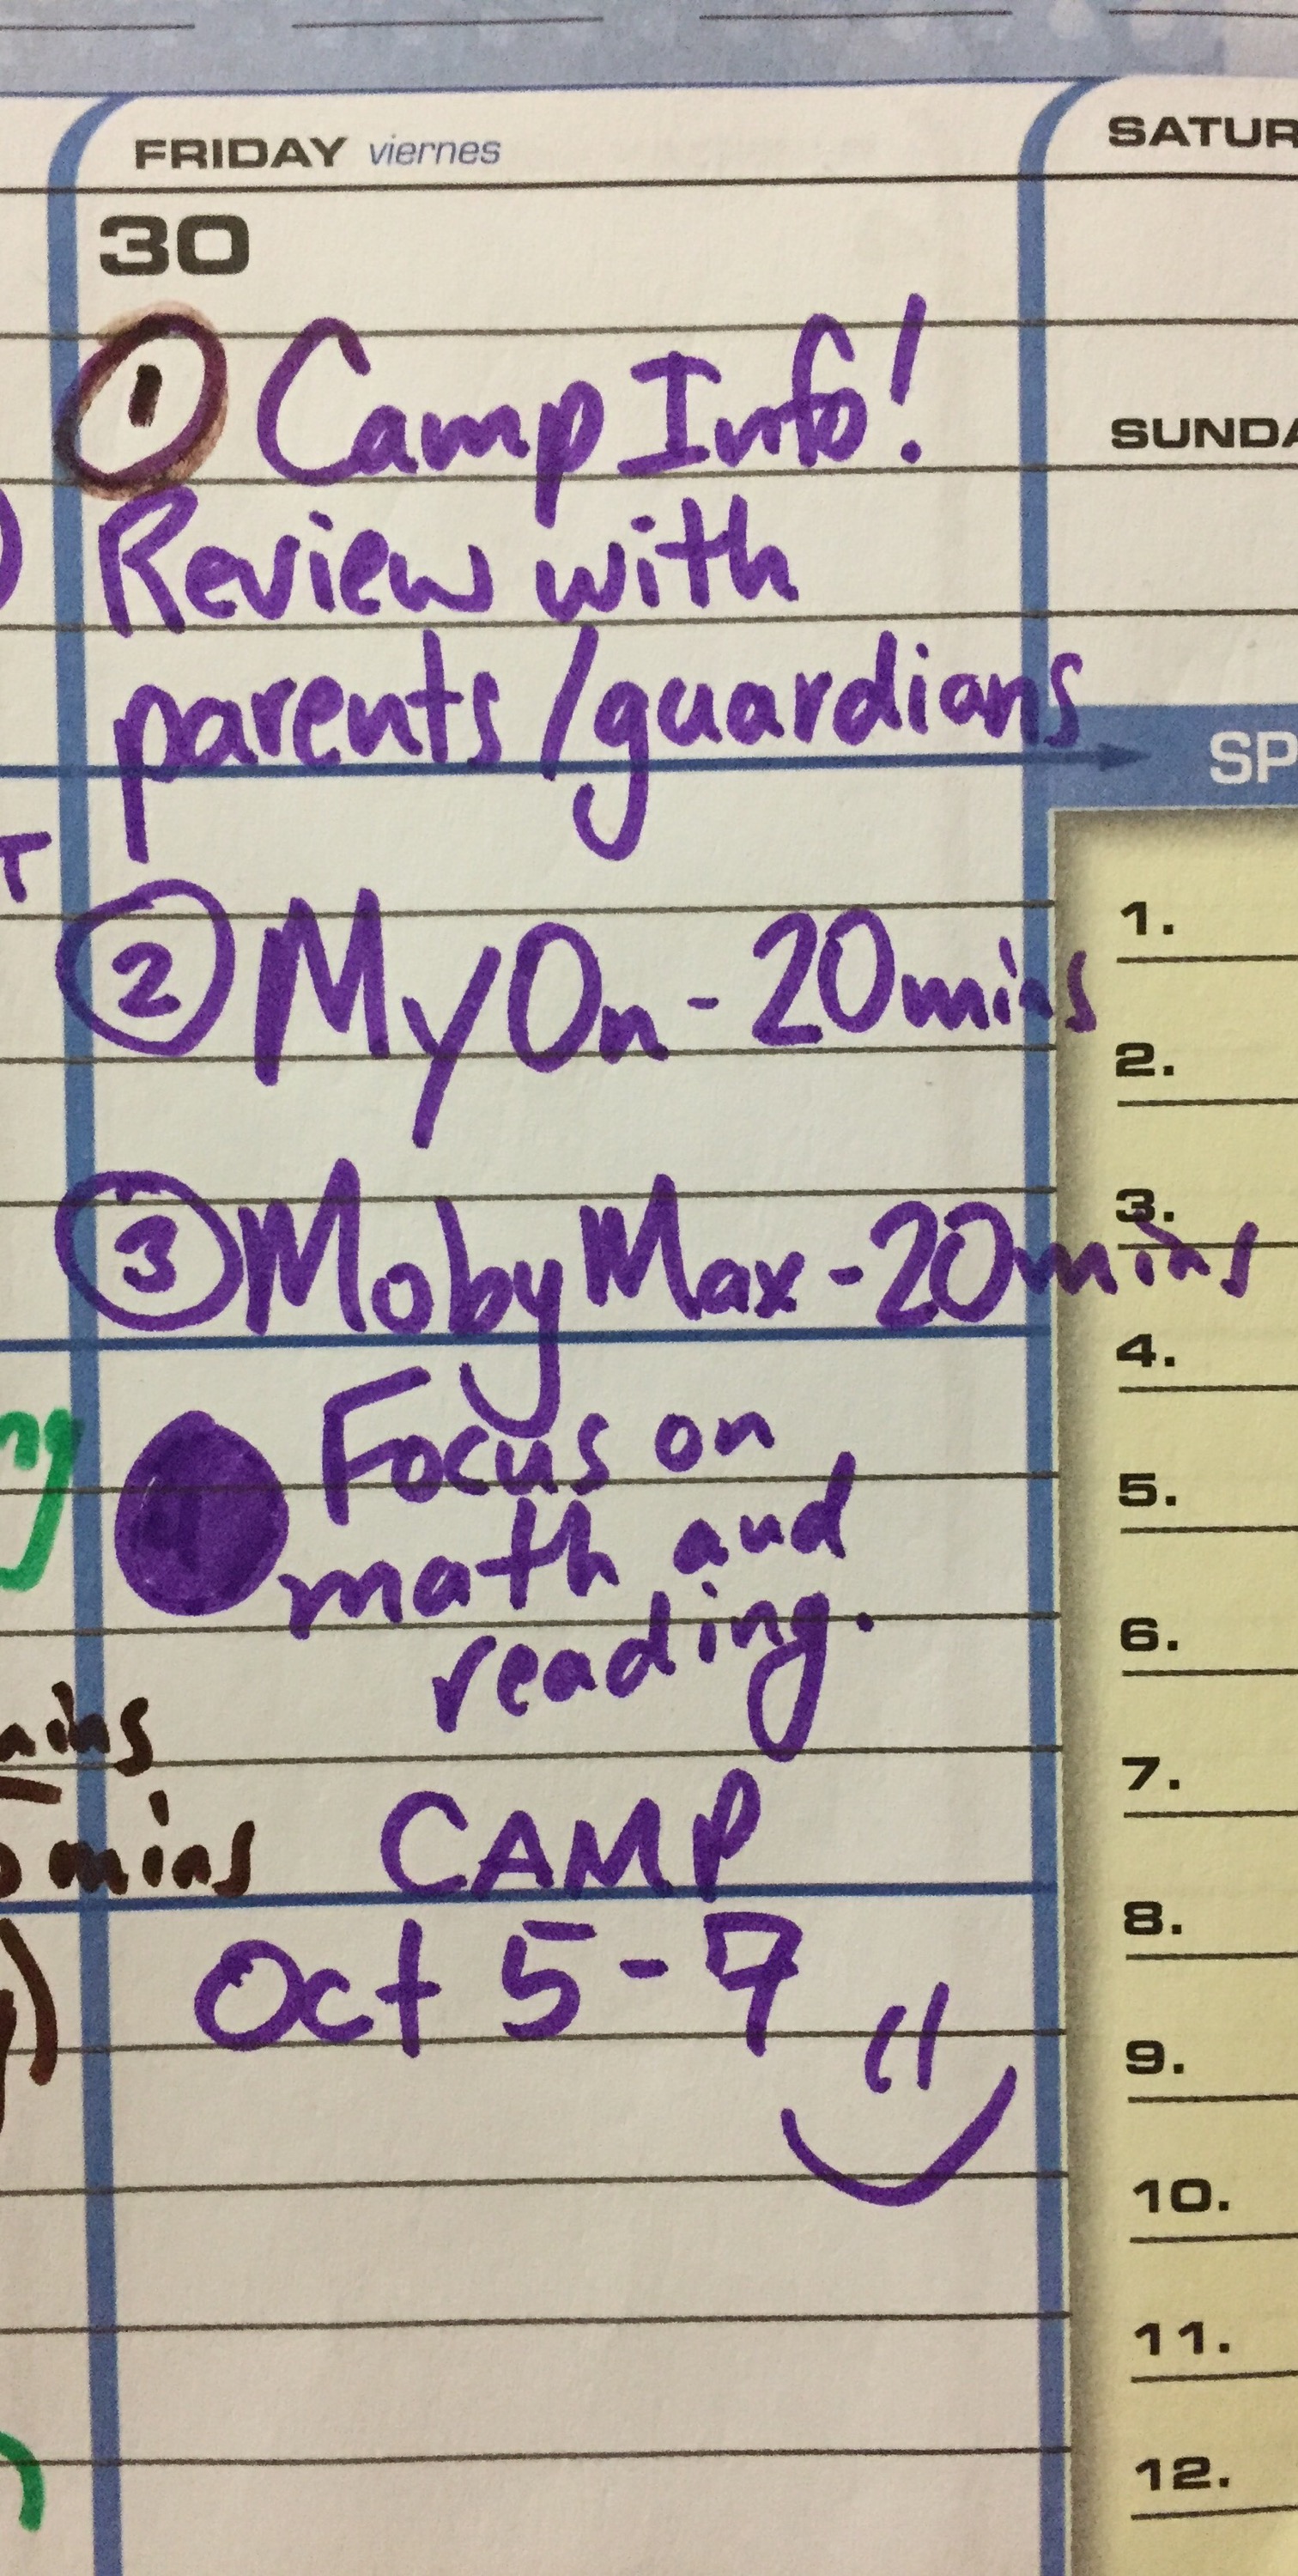 FRIDAY viernes
30
① Camp Info!
Review with
parents/guardians
② MyOn - 20 mins
③ MobyMax - 20 mins
Focus on
math and
reading.
CAMP
Oct 5-7
mins
mins
SATUR
SUNDA
SP
1.
2.
3.
4.
5.
6.
7.
8.
9.
10.
11.
12.